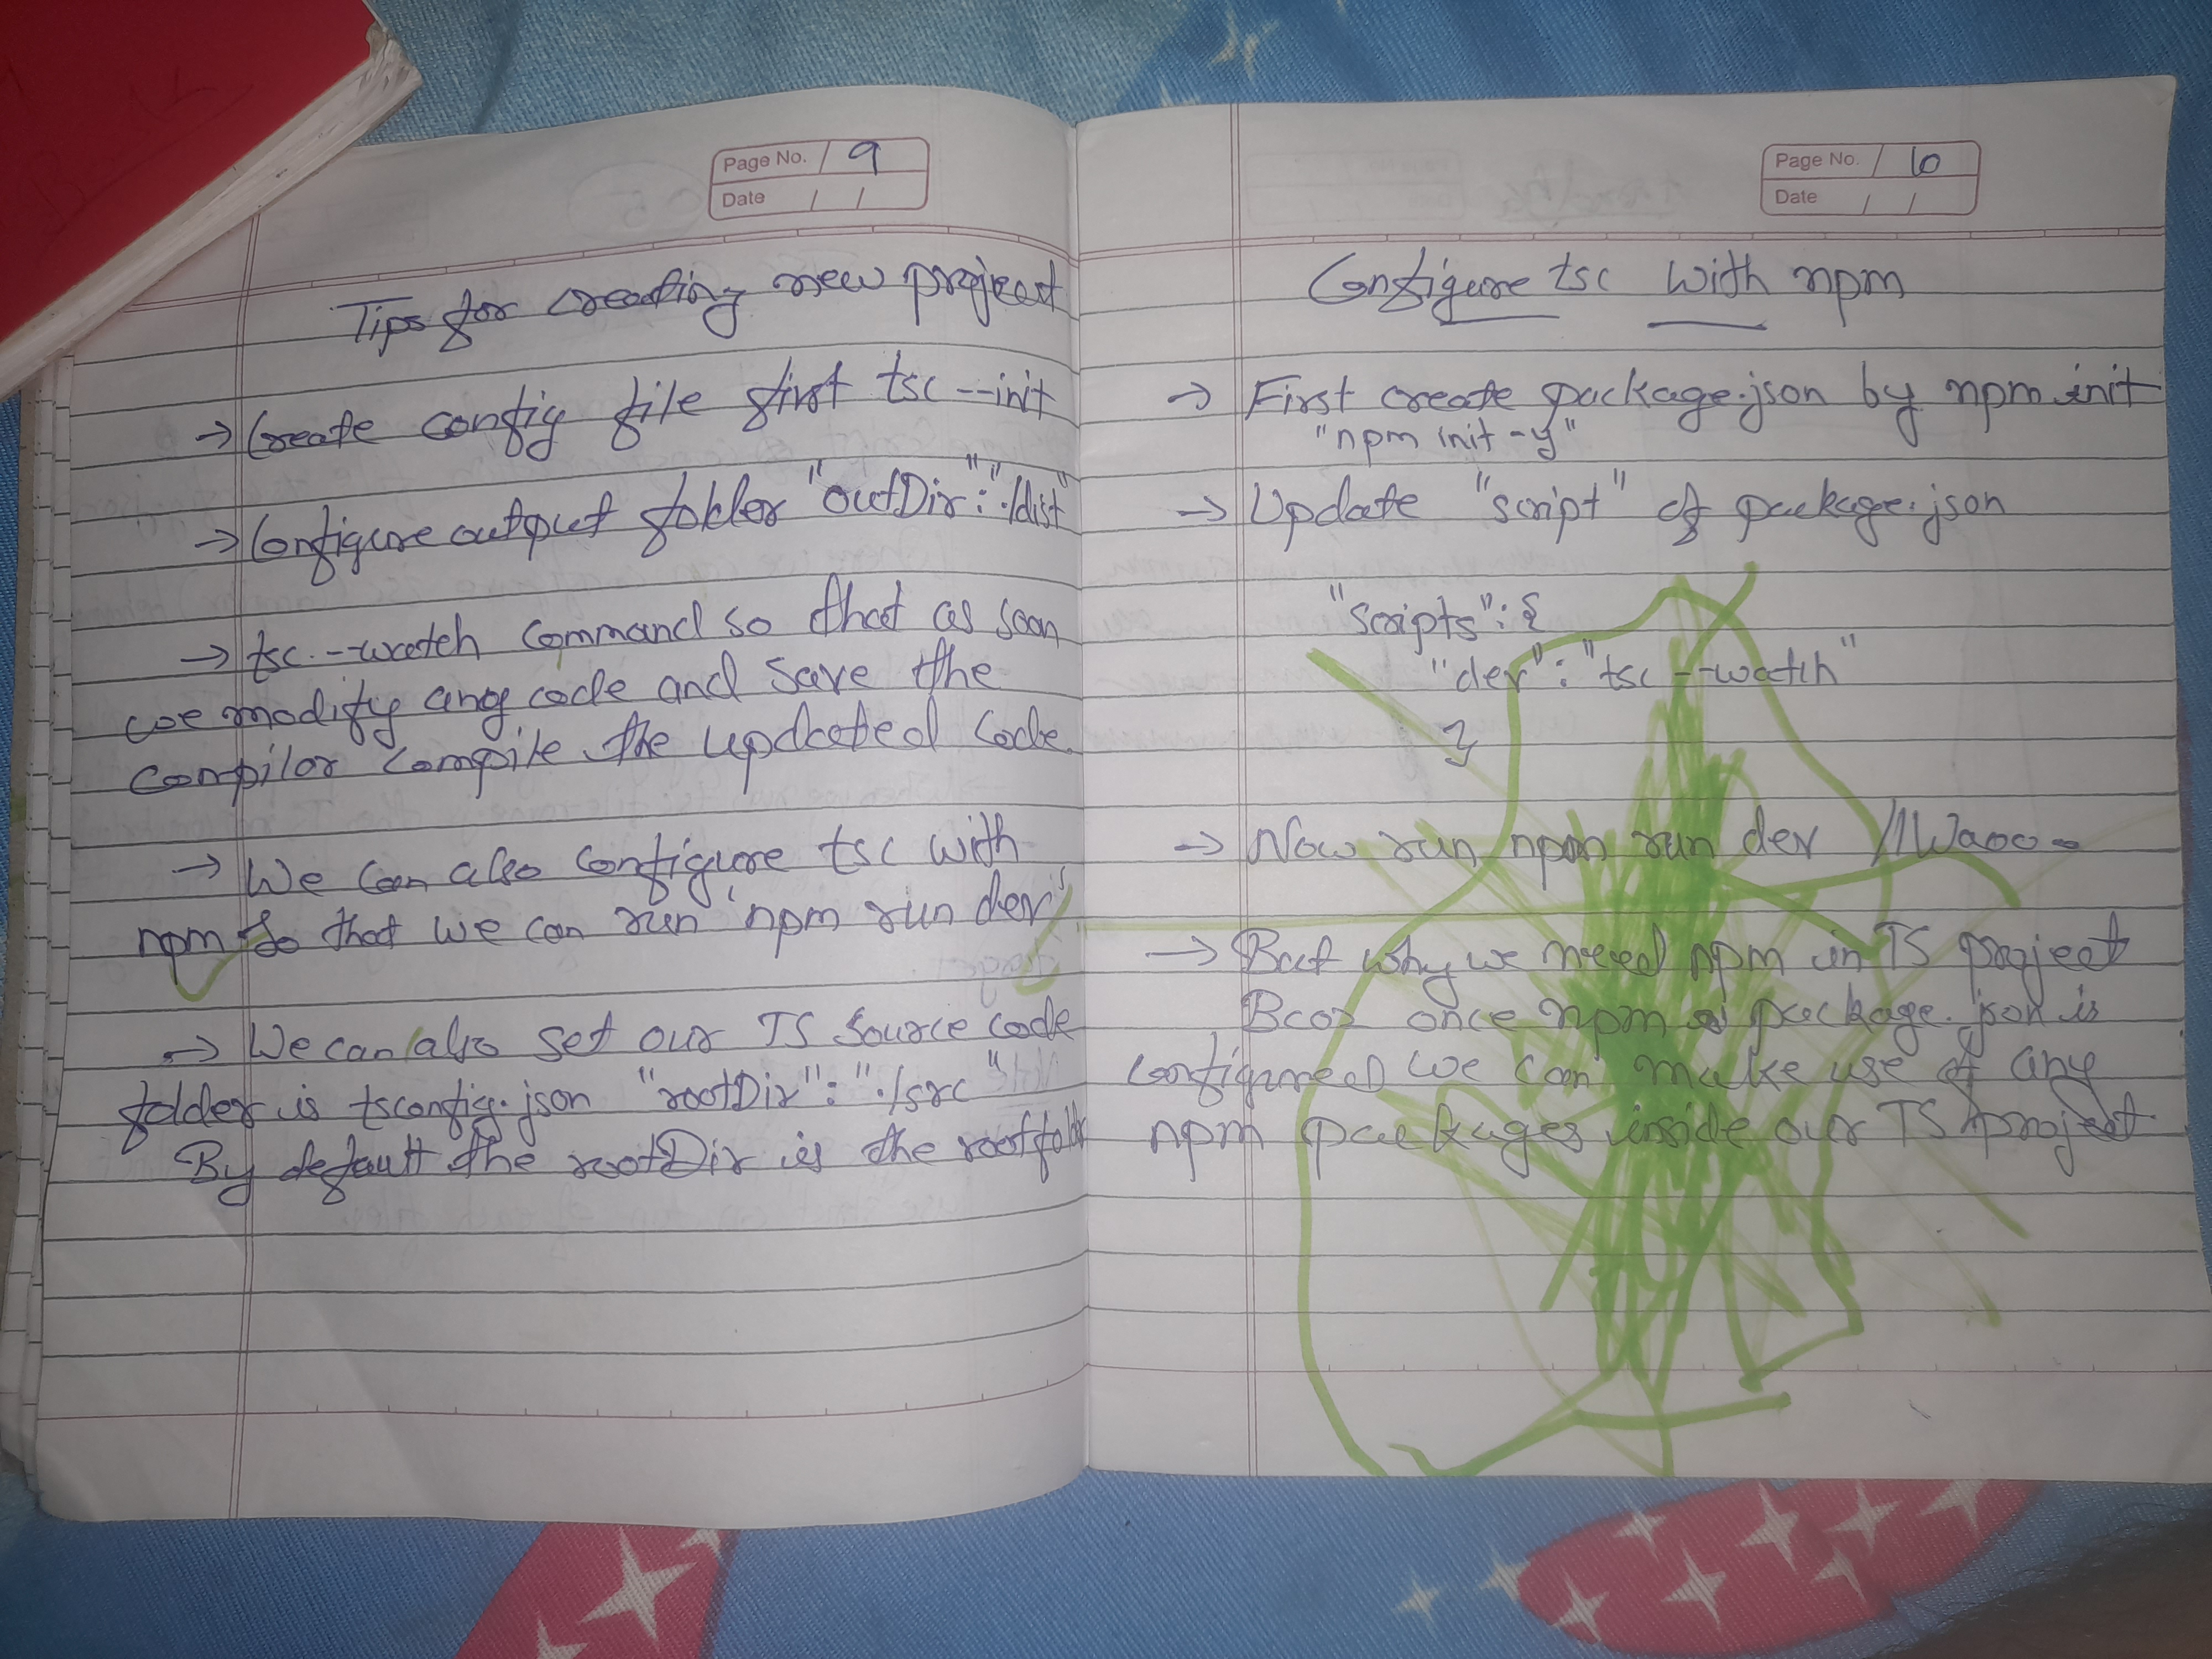 Page No. / 9
Date / /
Tips for creating new project
→ Create config file first tsc --init
→ Configure output folder "outDir": "./dist"
→ tsc --watch command so that as soon
we modify any code and save the
compilor compile the updated code
→ We can also configure tsc with
npm so that we can run 'npm run dev'
→ We can also set our TS source code
folder is tsconfig.json "rootDir": "./src"
By default the rootDir is the root folder
Page No. / 10
Date / /
Configure tsc with npm
→ First create package.json by npm init
"npm init -y"
→ Update "script" of package.json
"scripts": {
"dev": "tsc --watch"
}
→ Now run npm run dev //Waoo
→ But why we need npm in TS project
Bcoz once npm package.json is
configured we can make use of any
npm packages inside our TS project